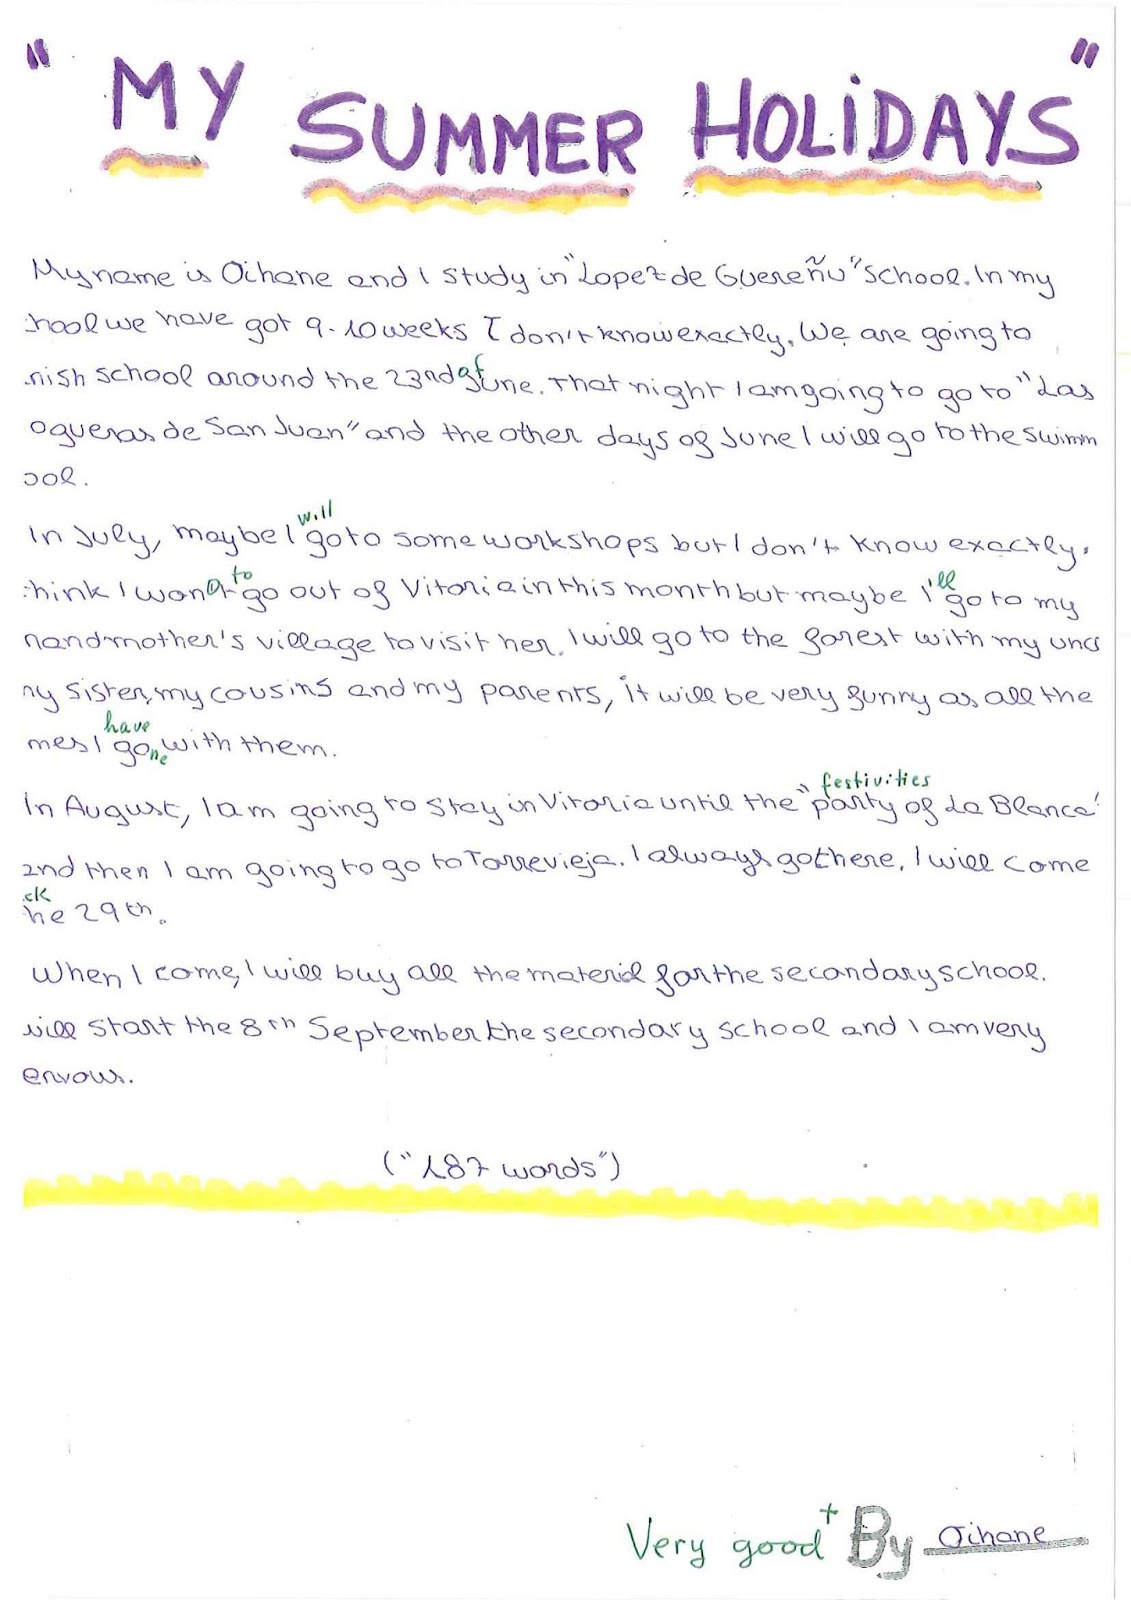 " MY SUMMER HOLiDAYS "
My name is Oihane and I study in "Lopez de Guereñu" School. In my
hool we have got 9-10 weeks I don't know exactly. We are going to
nish school around the 23nd of June. That night I am going to go to "Las
ogueras de San Juan" and the other days of June I will go to the swimm
ool.
In July, maybe I will go to some workshops but I don't know exactly.
think I won't to go out of Vitoria in this month but maybe I'll go to my
randmother's village to visit her. I will go to the forest with my unc
my sister, my cousins and my parents, it will be very funny as all the
mes I have gone with them.
In August, I am going to stay in Vitoria until the "party festivities of La Blanca"
and then I am going to go to Torrevieja. I always go there. I will come
ck
he 29th.
When I come, I will buy all the material for the secondary school.
will start the 8th September the secondary school and I am very
ervous.
("187 words")
Very good+ By Oihane